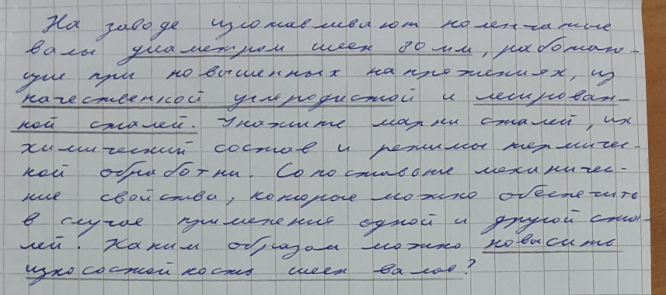 На заводе изготавливают коленчатые
валы диаметром шеек 80 мм, работаю-
щие при повышенных напряжениях, из
качественной углеродистой и легирован-
ной сталей. Укажите марки сталей, их
химический состав и режимы термичес-
кой обработки. Сопоставьте механичес-
кие свойства, которые можно обеспечить
в случае применения одной и другой ста-
лей. Каким образом можно повысить
износостойкость шеек валов?